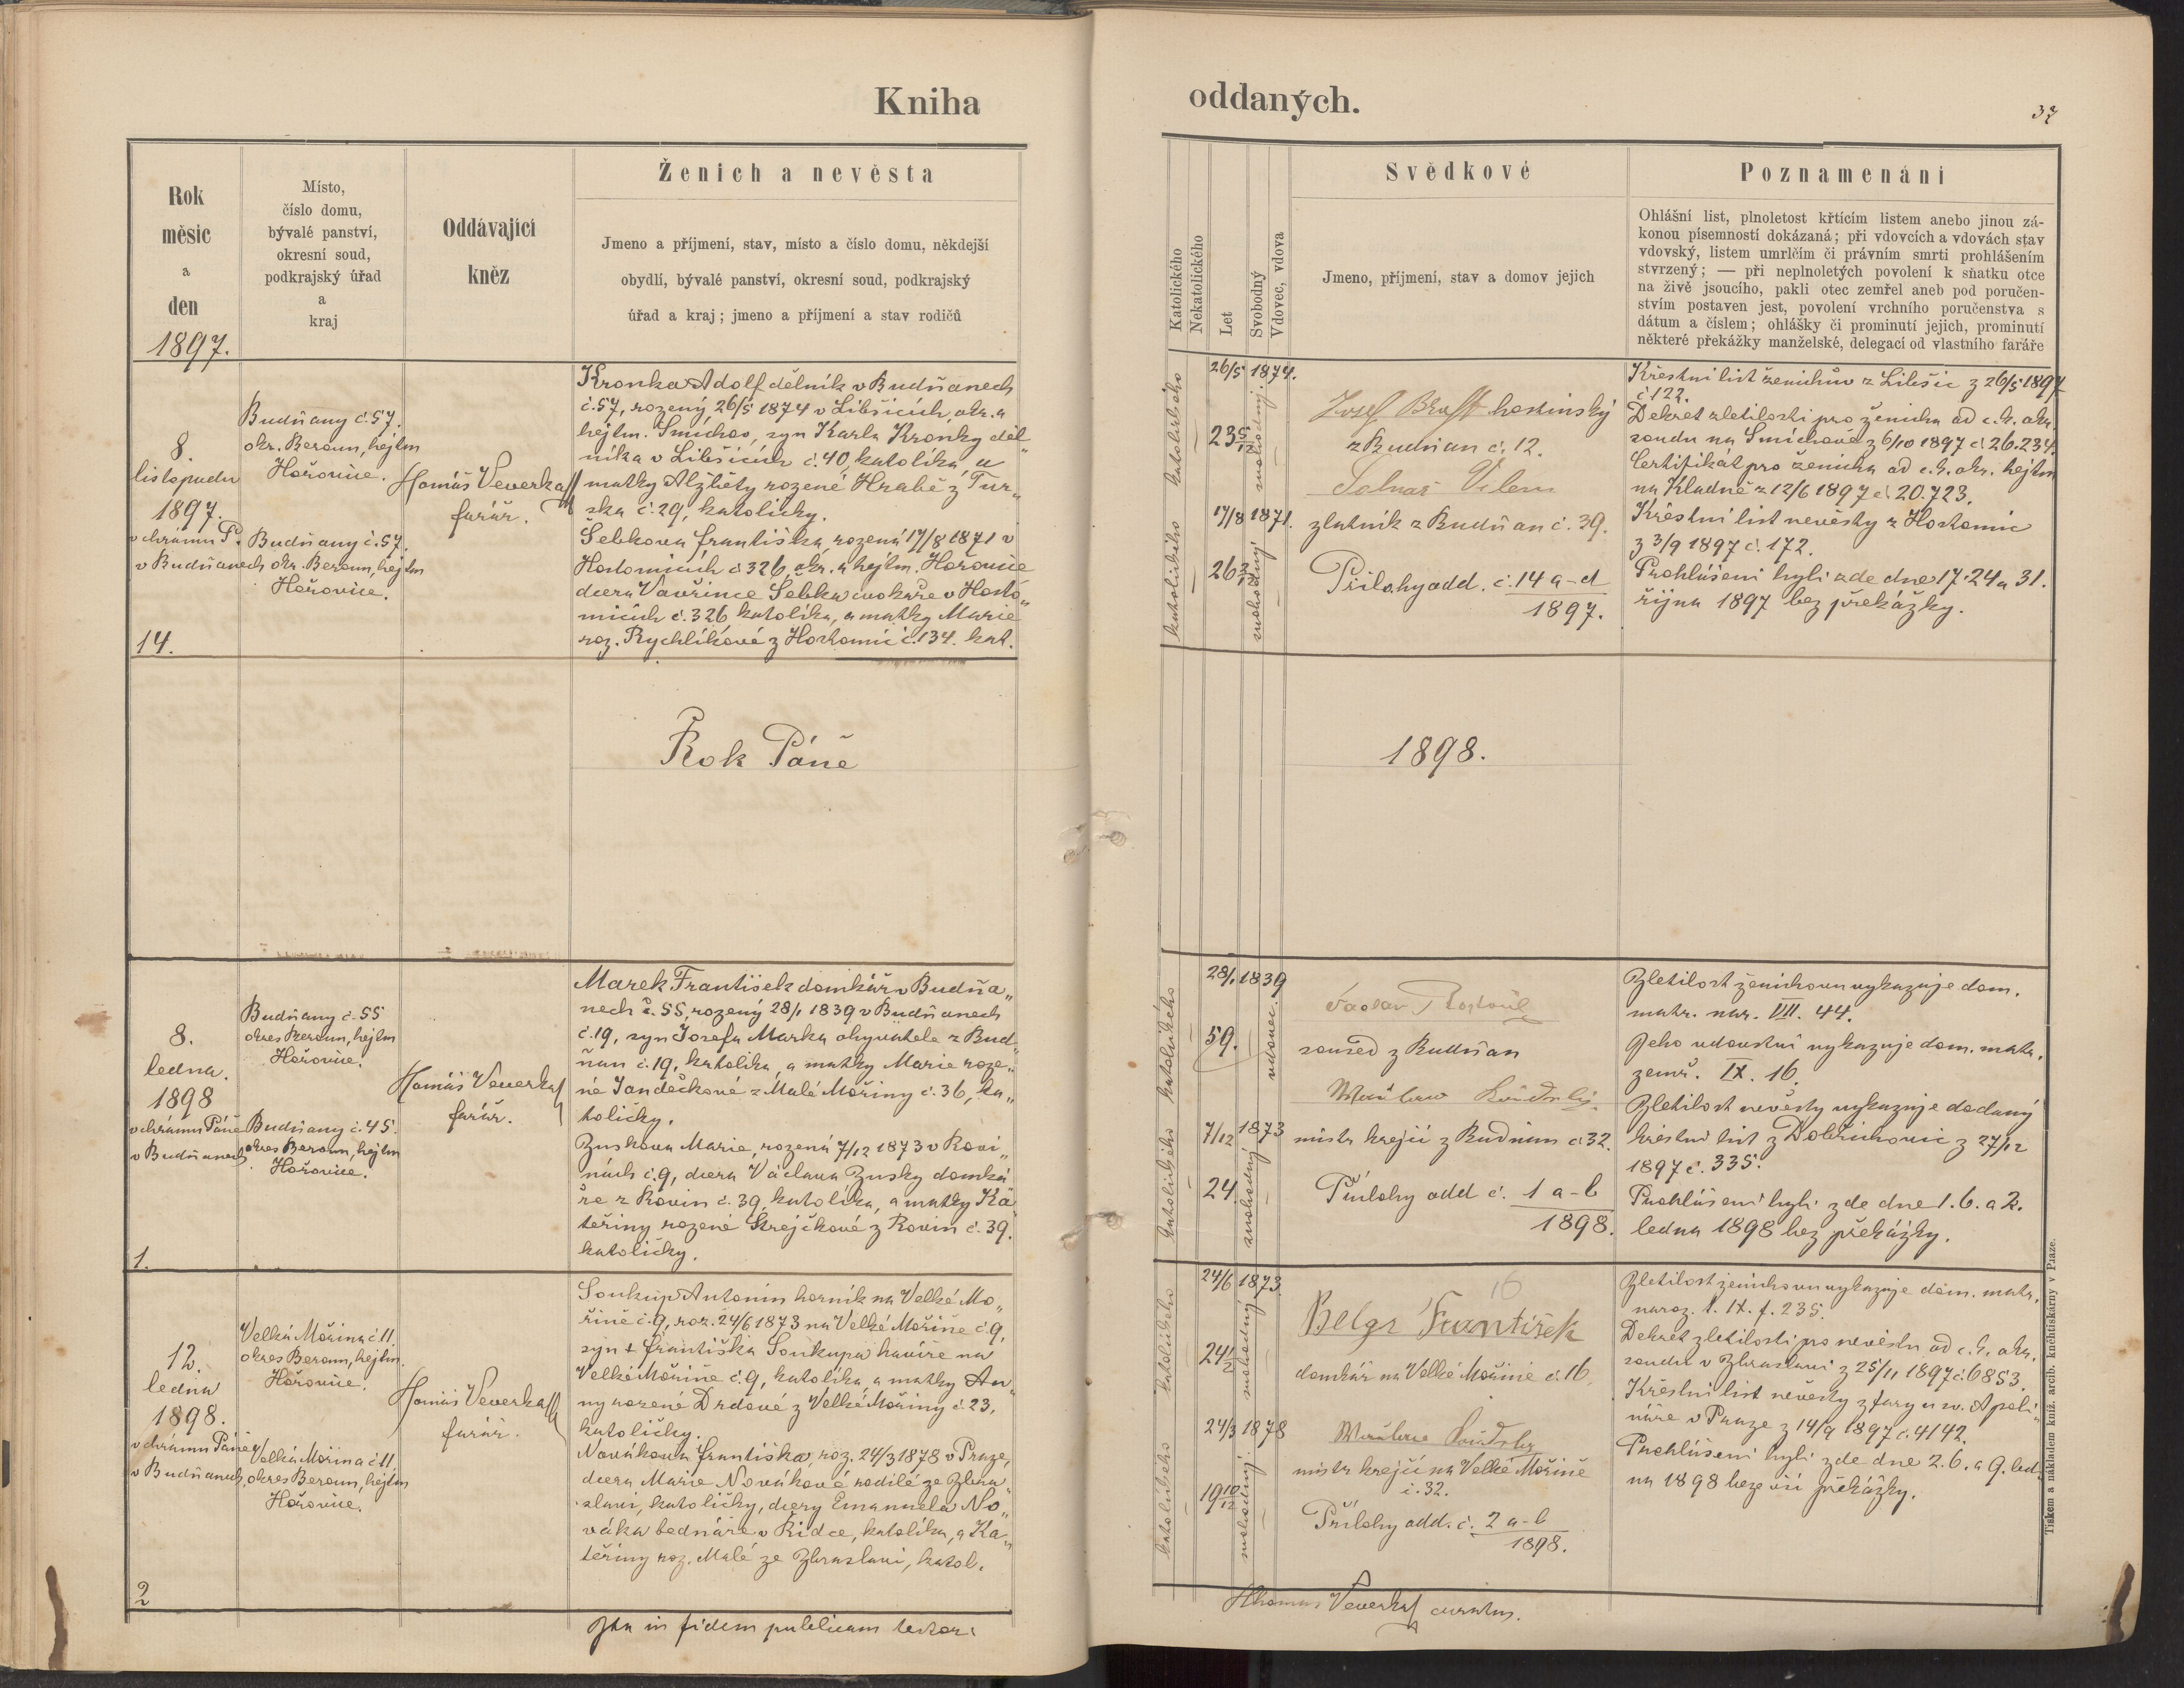 Kniha
oddaných.
37
Rok
měsíc
a
den
1897.
Místo,
číslo domu,
bývalé panství,
okresní soud,
podkrajský úřad
a
kraj
Oddávající
kněz
Ženich a nevěsta
Jmeno a příjmení, stav, místo a číslo domu, někdejší
obydlí, bývalé panství, okresní soud, podkrajský
úřad a kraj; jmeno a příjmení a stav rodičů
Katolického
Nekatolického
Let
Svobodný
Vdovec, vdova
Svědkové
Jmeno, příjmení, stav a domov jejich
Poznamenání
Ohlášní list, plnoletost křtícím listem anebo jinou zá-
konou písemností dokázaná; při vdovcích a vdovách stav
vdovský, listem umrlčím či právním smrti prohlášením
stvrzený; — při neplnoletých povolení k sňatku otce
na živě jsoucího, pakli otec zemřel aneb pod poručen-
stvím postaven jest, povolení vrchního poručenstva s
dátum a číslem; ohlášky či prominutí jejich, prominutí
některé překážky manželské, delegací od vlastního faráře
8.
listopadu
1897.
v chrámu P.
v Budňanech
14.
Budňany č. 57.
okr. Beroun, hejtm
Hořovice.
Budňany č. 57.
okr. Beroun, hejtm
Hořovice.
Tomáš Veverka
farář.
Kronka Adolf dělník v Budňanech
č. 57, rozený 26/5 1874 v Libšicích, okr. a
hejtm. Smíchov, syn Karla Kronky děl„
níka v Libšicích č. 40, katolíka, a
matky Alžběty rozené Hrabě z Tur„
ska č. 29, katoličky.
Šebkova Františka, rozená 17/8 1871 v
Hostomicích č 326, okr. a hejtm. Hořovice
dcera Vavřince Šebka cvokaře v Hosto„
micích č. 326 katolíka, a matky Marie
roz. Rychlíkové z Hostomic č. 134. kat.
katolického
26/5 1874.
23 5/12
svobodný
katolického
17/8 1871.
26 2/12
svobodný
Josef hostinský
z Budňan č. 12.
Vilem
zlatník z Budňan č. 39.
Přílohy odd. č. 14 a-d
1897.
Křestní list ženichův z Libšic z 26/5 1897
č 122.
Dekret zletilosti pro ženicha od c. k. okr.
soudu na Smíchově z 6/10 1897 č. 26.234.
Certifikát pro ženicha od c. k. okr. hejtm
na Kladně z 12/6 1897 č. 20.723.
Křestní list nevěsty z Hostomic
z 3/9 1897 č. 172.
Prohlášeni byli zde dne 17. 24 a 31.
října 1897 bez překážky.
Rok Páně
1898.
8.
ledna.
1898
v chrámu Páně
v Budňanech
1.
Budňany č. 55
okres Beroun, hejtm
Hořovice.
Budňany č. 45.
okres Beroun, hejtm
Hořovice.
Tomáš Veverka
farář.
Marek František domkář v Budňa„
nech č. 55, rozený 28/1 1839 v Budňanech
č. 19, syn Josefa Marka obyvatele z Bud„
ňan č. 19, katolíka, a matky Marie roze„
né Jandečkové z Malé Mořiny č. 36, ka„
toličky.
Zuskova Marie, rozená 7/12 1873 v Rovi„
nách č. 9, dcera Václava Zusky domká
ře z Rovin č. 39, katolíka, a matky Ka
teřiny rozené Krejčkové z Rovin č. 39.
katoličky.
katolického
28/1 1839
59.
vdovec
katolického
7/12 1873
24.
svobodný
Vaclav
soused z Budňan
mistr krejčí z Budňan č 32.
Přílohy odd č. 1 a-b
1898.
Zletilost ženichovu vykazuje dom.
matr. nar. VIII. 44.
Jeho vdovství vykazuje dom. matr.
zemř. IX. 16.
Zletilost nevěsty vykazuje dodaný
křestní list z Dobřichovic z 27/12
1897 č. 335.
Prohlášeni byli zde dne 1. 6. a 2.
ledna 1898 bez překážky.
12.
ledna
1898.
v chrámu Páně
v Budňanech
2
Velká Mořina č 11.
okres Beroun, hejtm.
Hořovice.
Velká Mořina č 11.
okres Beroun, hejtm
Hořovice.
Tomáš Veverka
farář.
Soukup Antonin horník na Velké Mo„
řině č. 9, roz. 24/6 1873 na Velké Mořině č 9,
syn † Františka Soukupa havíře na
Velké Mořině č. 9, katolíka a matky An„
ny rozené Drdové z Velké Mořiny č. 23,
katoličky.
Novákova Františka, roz. 24/3 1878 v Praze,
dcera Marie Novákové rodilé ze Zbra„
slavi, katoličky, dcery Emanuela No„
váka bednáře v Řidce, katolíka, a Ka„
teřiny roz. Malé ze Zbraslavi, katol.
katolického
24/6 1873
24 1/2
svobodný
katolického
24/3 1878
19 10/12
svobodný
16
Belgr František
domkář na Velké Mořině č. 16.
mistr krejčí na Velké Mořině
č. 32.
Přílohy odd. č. 2 a-b
1898.
Zletilost ženichovu vykazuje dom. matr.
naroz. t. IX. f. 235.
Dekret zletilosti pro nevěstu od c. k. okr.
soudu v Zbraslavi z 25/11 1897 č. 6853.
Křestní list nevěsty z fary u sv. Apoli„
náře v Praze z 14/9 1897 č. 4142.
Prohlášeni byli zde dne 2. 6. a 9. led„
na 1898 beze vší překážky.
Ita in fidem publicam testor:
Thomas Veverka curatus.
Tiskem a nákladem kníž. arcib. knihtiskárny v Praze.